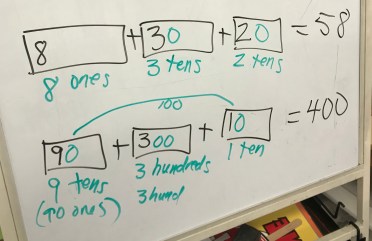 8 + 30 + 20 = 58
8 ones 3 tens 2 tens
100
90 + 300 + 10 = 400
9 tens 3 hundreds 1 ten
(90 ones) 3 hund